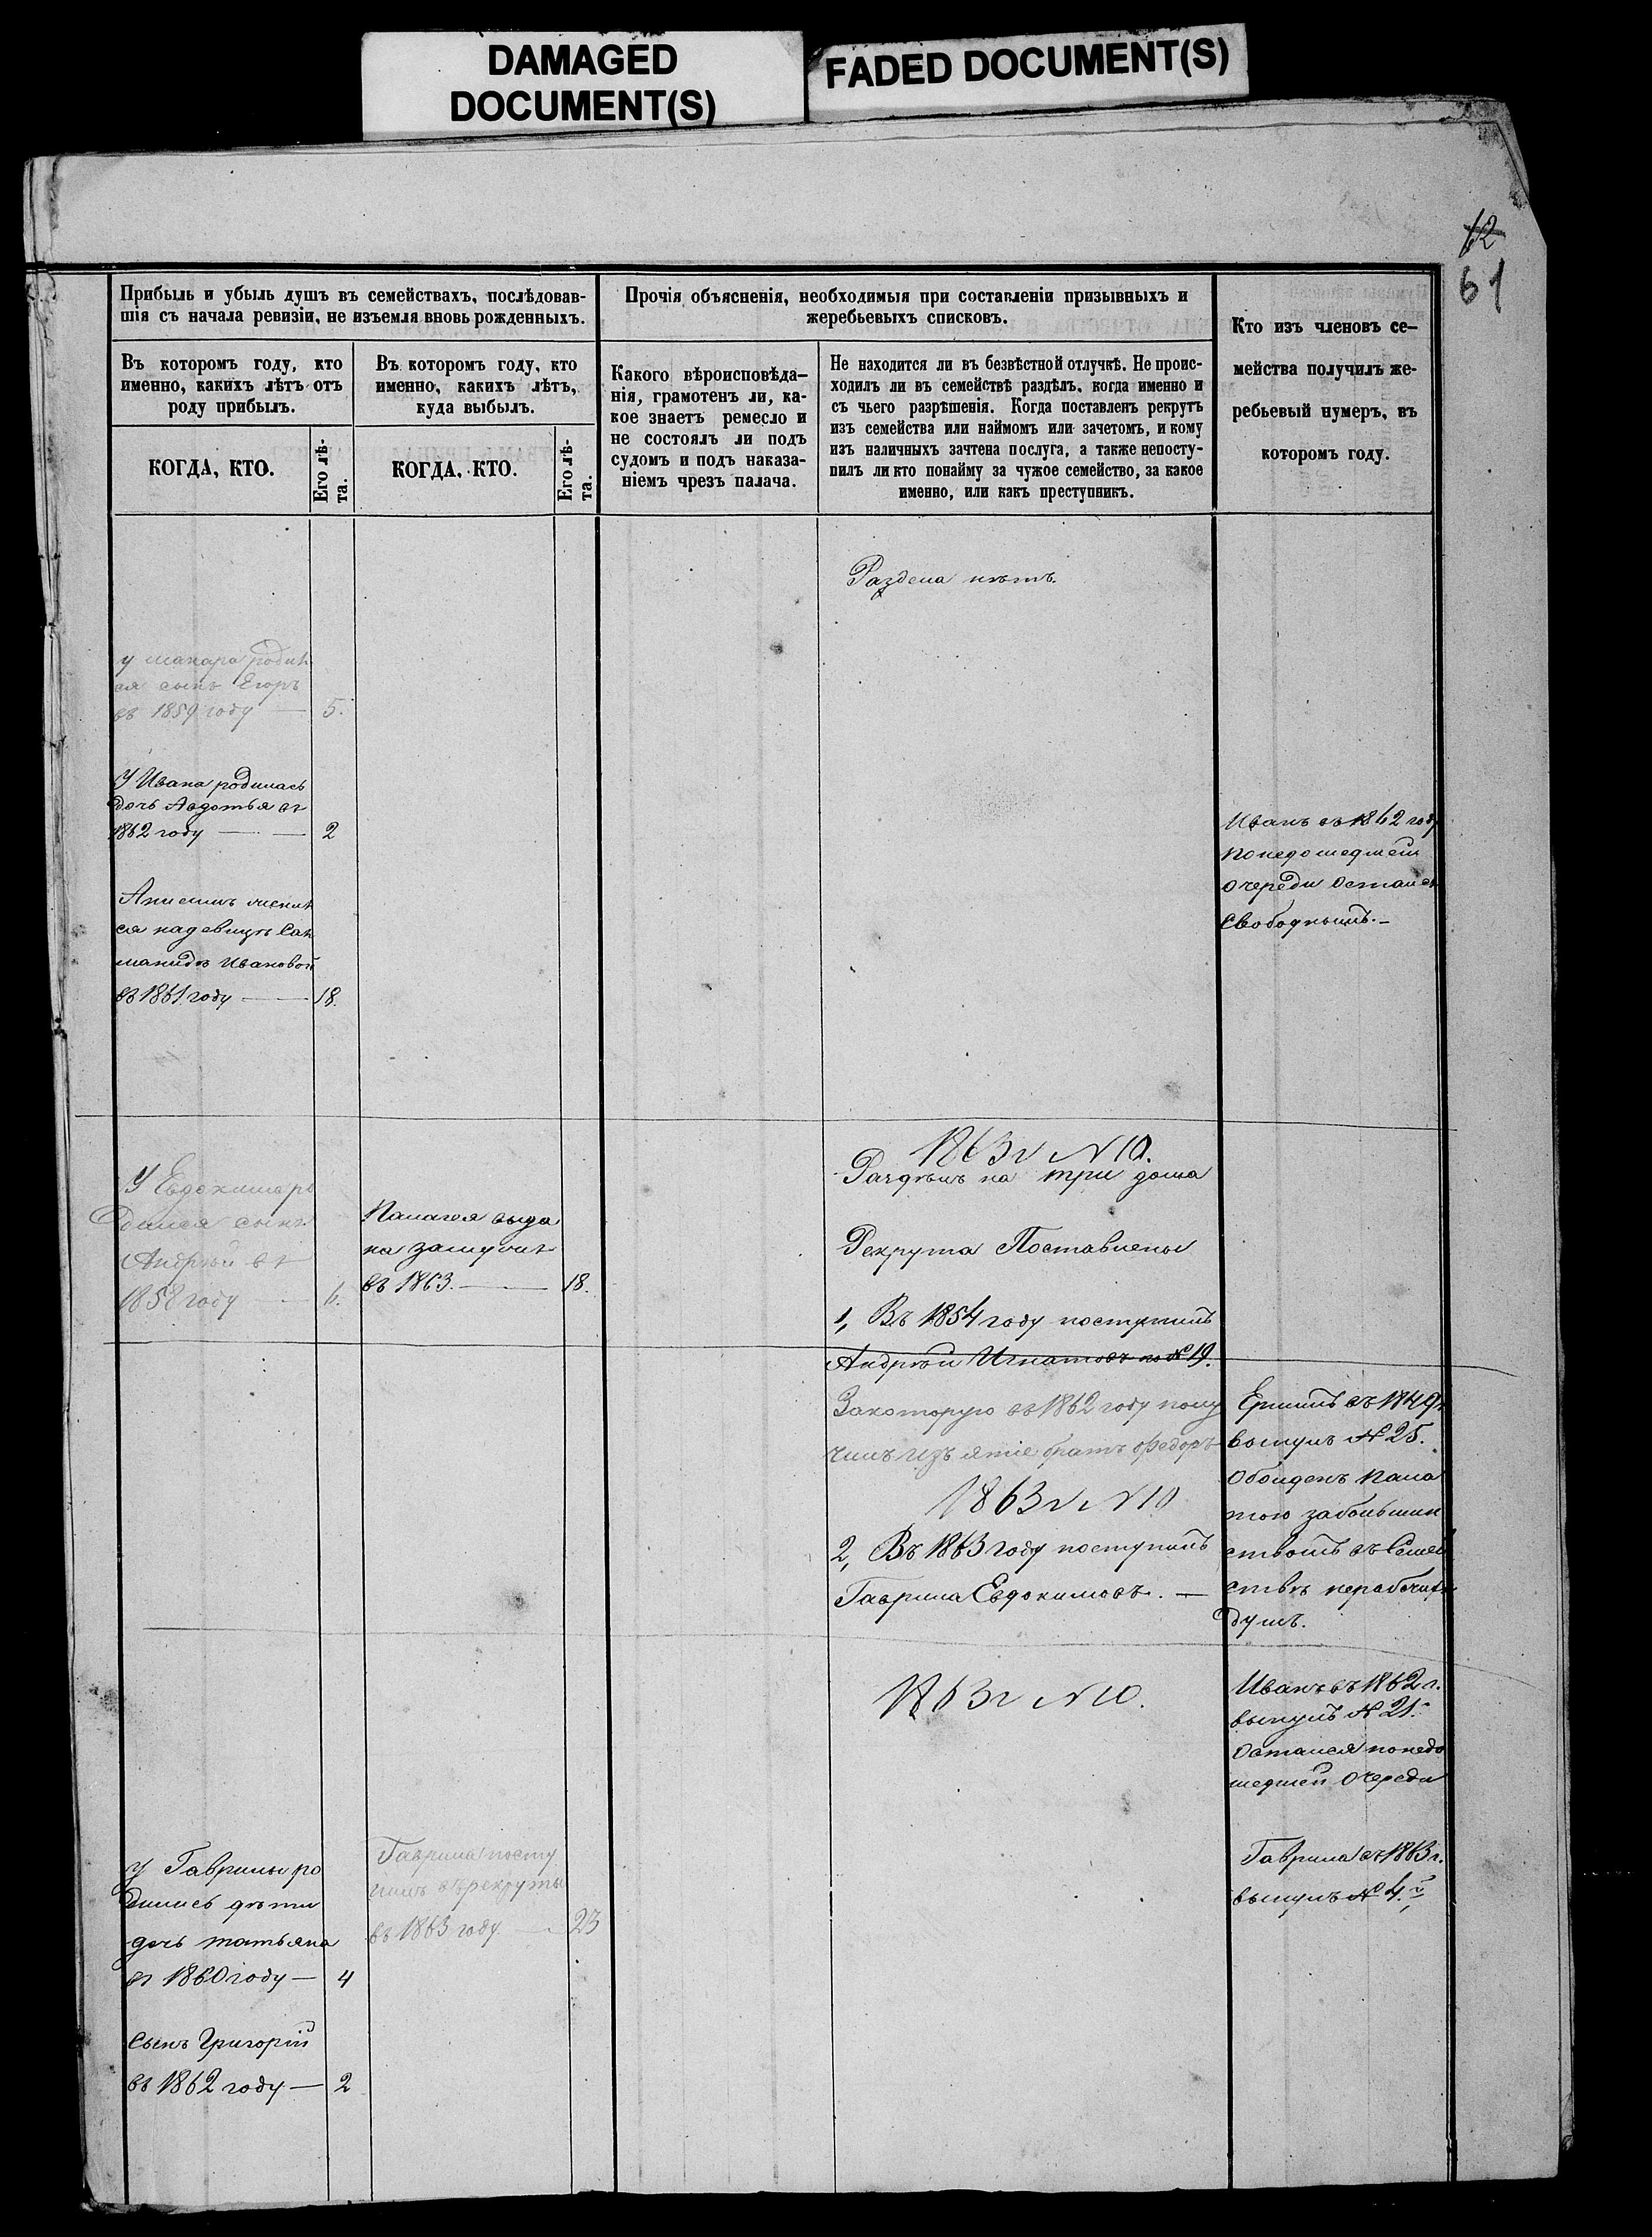 DAMAGED
DOCUMENT(S)
FADED DOCUMENT(S)
62
61
Прибыль и убыль душъ въ семействахъ, послѣдовав-
шія съ начала ревизіи, не изъемля вновь рожденныхъ.
Въ которомъ году, кто
именно, какихъ лѣтъ отъ
роду прибылъ.
Въ которомъ году, кто
именно, какихъ лѣтъ,
куда выбылъ.
КОГДА, КТО.
Его лѣ-
та.
КОГДА, КТО.
Его лѣ-
та.
Прочія объясненія, необходимыя при составленіи призывныхъ и
жеребьевыхъ списковъ.
Какого вѣроисповѣда-
нія, грамотенъ ли, ка-
кое знаетъ ремесло и
не состоялъ ли подъ
судомъ и подъ наказа-
ніемъ чрезъ палача.
Не находится ли въ безвѣстной отлучкѣ. Не проис-
ходилъ ли въ семействѣ раздѣлъ, когда именно и
съ чьего разрѣшенія. Когда поставленъ рекрутъ
изъ семейства или наймомъ или зачетомъ, и кому
изъ наличныхъ зачтена послуга, а также непосту-
пилъ ли кто понайму за чужое семейство, за какое
именно, или какъ преступникъ.
Кто изъ членовъ се-
мейства получилъ же-
ребьевый нумеръ, въ
которомъ году.
Раздела нѣтъ.
у макара родил
ся сынъ Егоръ
въ 1859 году — 5.
У Ивана родилась
дочь Авдотья въ
1862 году — 2
Анисимъ женил
ся надевицѣ
Ивановой
въ 1861 году — 18.
Иванъ въ 1862 году
понедошедшей
очереди остался
свободнымъ.-
У Евдокима ро
дился сынъ
Андрѣй въ
1858 году — 6.
Палагея выда
на замужъ
въ 1863 — 18.
1863 г N 10.
Раздѣлъ на три дома
Рекрута Поставлены
1, Въ 1854 году поступилъ
Андрѣй Игнатовъ по № 19.
Закоторую въ 1862 году полу
чилъ изъятіе братъ Федоръ
1863 г N 10
2, Въ 1863 году поступилъ
Гаврила Евдокимовъ. —
1863 г N 10.
Ермилъ въ 1849 г
вынулъ № 25.
обойденъ пала
тою забольшин
ствомъ въ Семей
ствѣ нерабочихъ
душъ.
Иванъ въ 1862 г.
вынулъ № 21.
остался понедо
шедшей очереди
Гаврила въ 1863 г.
вынулъ № 4.й
У Гаврилы ро
дились дѣти
дочь татьяна
въ 1860 году — 4
сынъ Григорій
въ 1862 году — 2
Гаврила посту
пилъ въ рекруты
въ 1863 году — 23